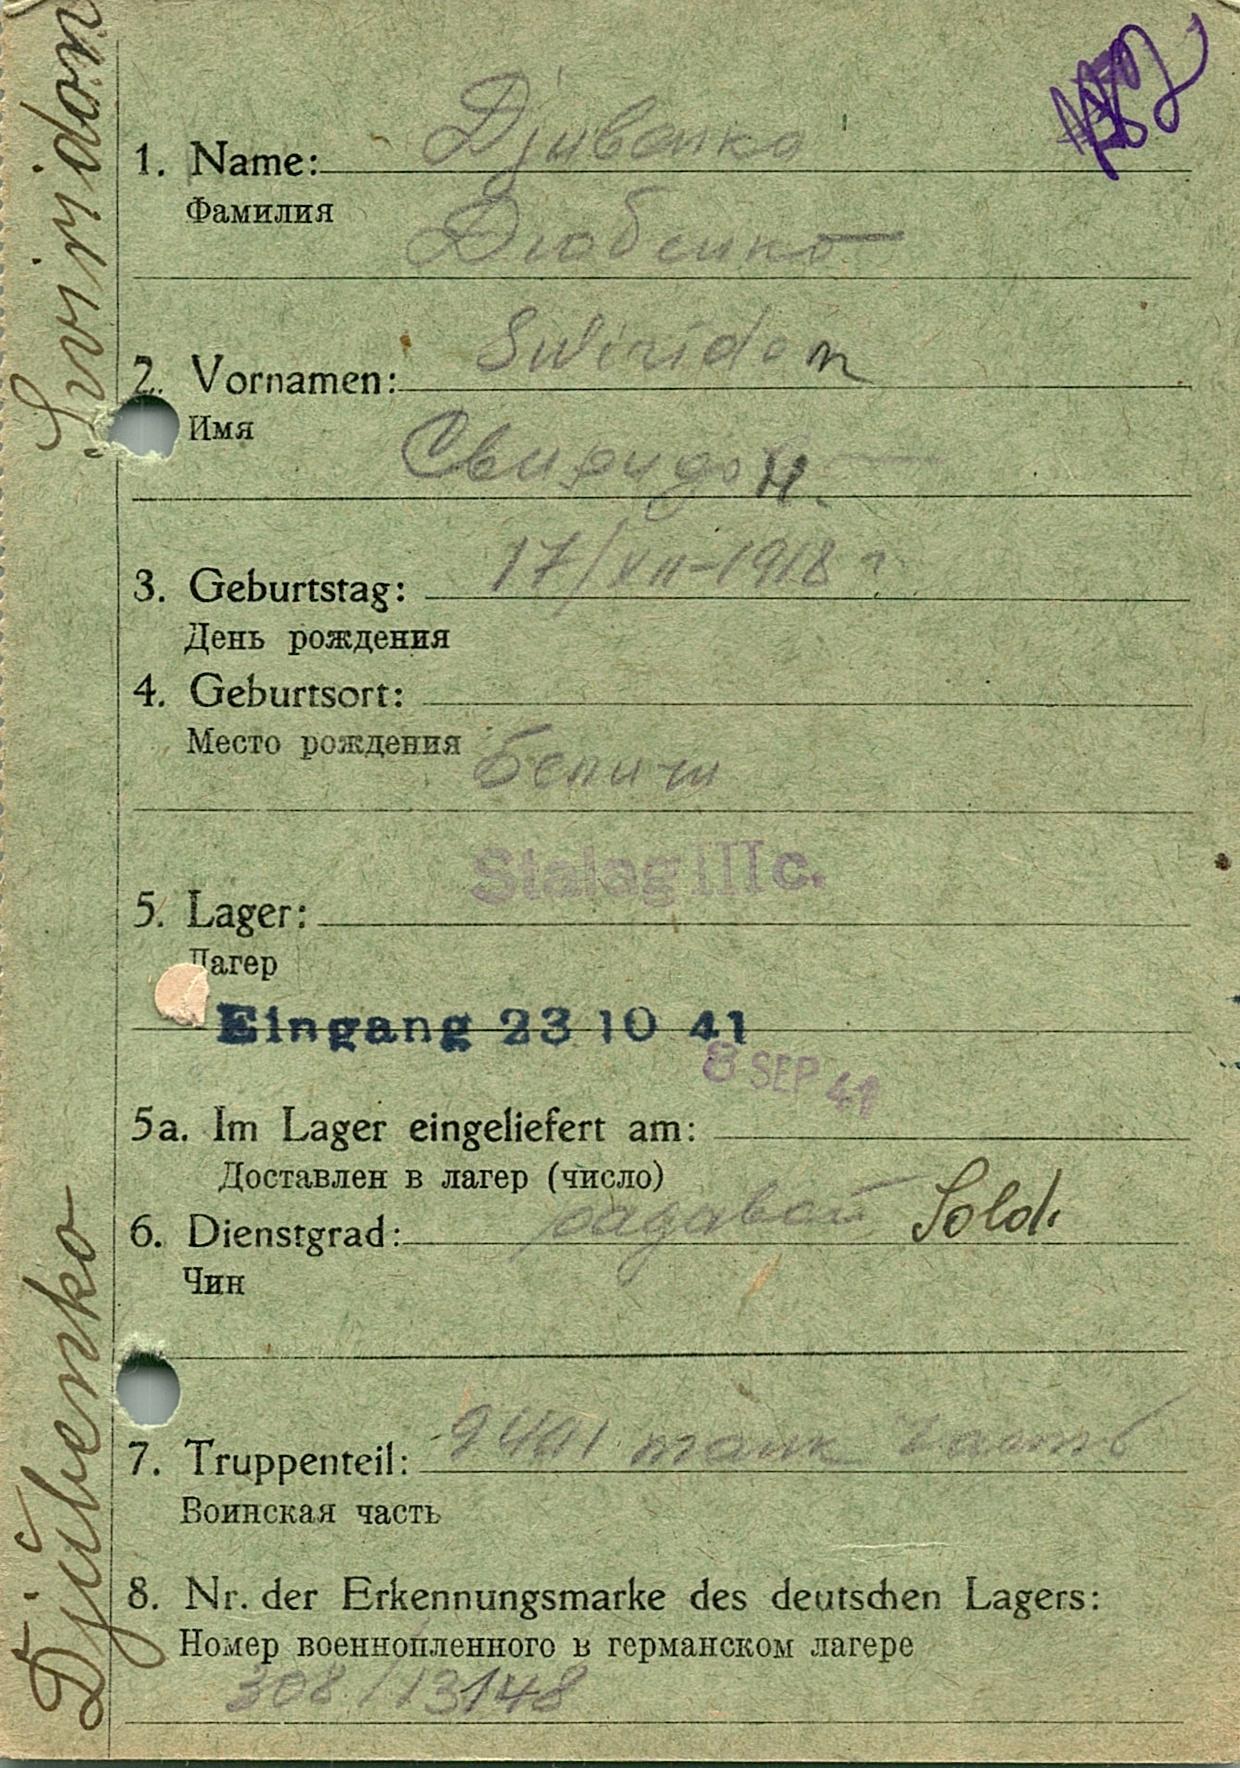 Sviridon
Djubenko
1. Name: Djubenko
Фамилия
Дюбенко
2. Vornamen: Swiridon
Имя
Свиридон
3. Geburtstag: 17/XII-1918 г
День рождения
4. Geburtsort:
Место рождения
Стalag IIIc.
5. Lager:
Лагер
Eingang 23 10 41
8 SEP 41
5a. Im Lager eingeliefert am:
Доставлен в лагер (число)
6. Dienstgrad: радавой Sold.
Чин
7. Truppenteil: 9401 танк часть
Воинская часть
8. Nr. der Erkennungsmarke des deutschen Lagers:
Номер военнопленного в германском лагере
308/13148